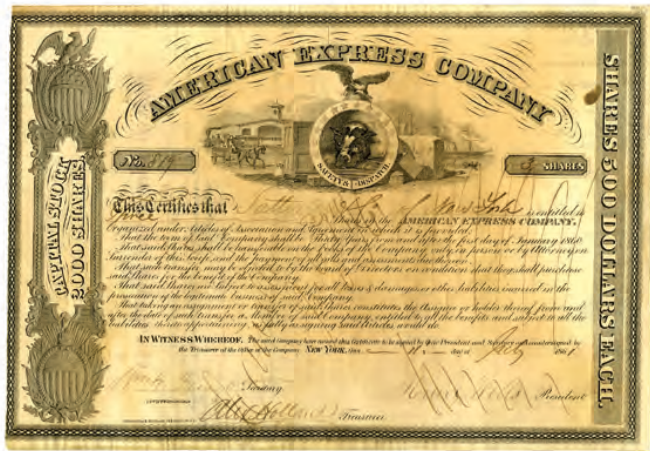 AMERICAN EXPRESS COMPANY
CAPITAL STOCK
2000 SHARES
SHARES 500 DOLLARS EACH.
SAFETY & DISPATCH
No. 819
3 SHARES
This Certifies that
New York is entitled to
Three Shares in the AMERICAN EXPRESS COMPANY.
Organized under Articles of Association and Agreement in which it is provided;
That the term of said Company shall be Thirty years from and after the first day of January 1860
That said Shares shall be transferable on the Books of the Company only in person or by Attorney on
Surrender of this Scrip, and the payment of all calls and assessments due thereon.
That such transfer may be objected to by the board of Directors on condition that they shall purchase
said Shares for the benefit of the Company.
That said Shares are subject to assessment for all losses & damages or other liabilities incurred in the
prosecution of the legitimate business of said Company.
That taking an assignment or transfer of said Shares constitutes the Assignee or holder thereof from and
after the date of such transfer a Member of said Company, entitled to all the benefits and subject to all the
liabilities thereto appertaining, as fully as signing said Articles would do.
IN WITNESS WHEREOF, The said Company has caused this Certificate to be signed by their President and Secretary and countersigned by
the Treasurer at the Office of the Company NEW YORK, this day of July 1861
Secretary.
Henry Wells President
Alex Holland Treasurer